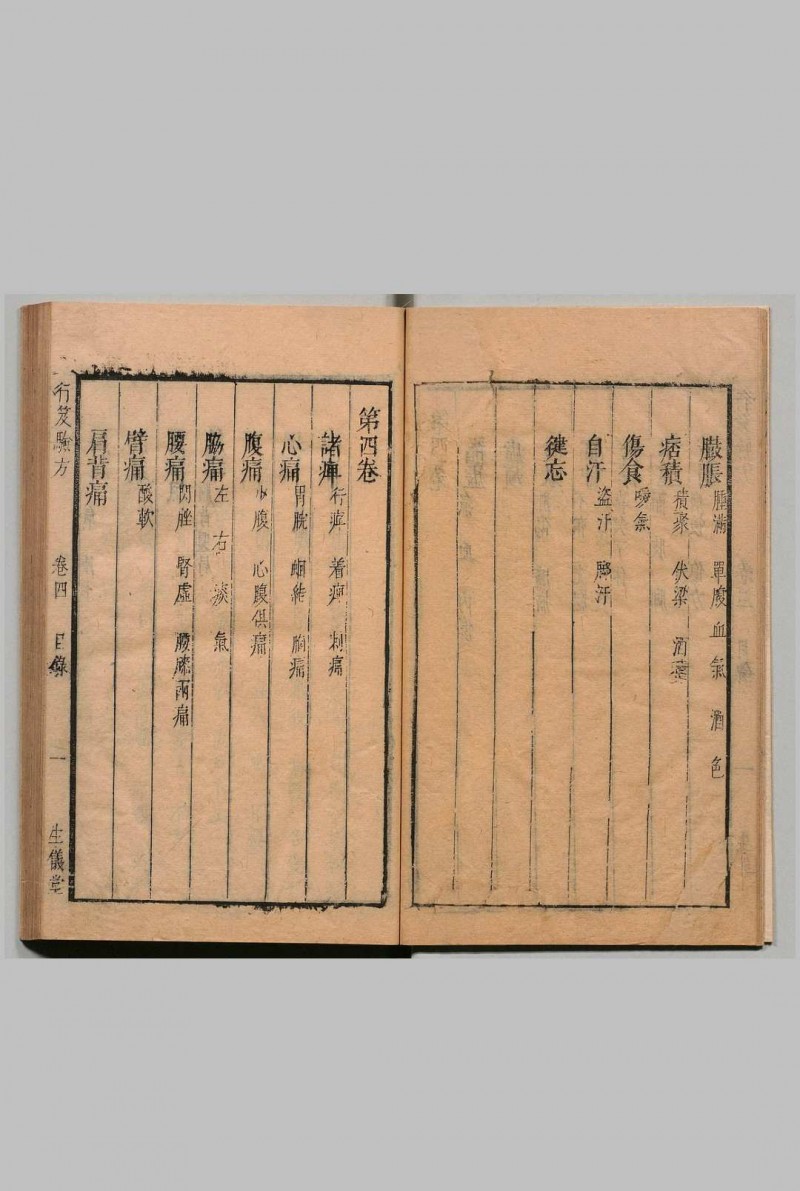 臌脹 腫滿 單腹 血 氣 酒 色
痞積 積聚 伏梁 酒
傷食 噯氣
自汗 盜汗 腳汗
健忘
第四卷
諸痺 行痺 着痺 刺痛
心痛 胃脘 蛔結 胸痛
腹痛 小腹 心腹俱痛
脇痛 左 右 痰 氣
腰痛 閃挫 腎虛 腰膝兩痛
臂痛 酸軟
肩背痛
行笈驗方 卷四 目錄 一 生儀堂